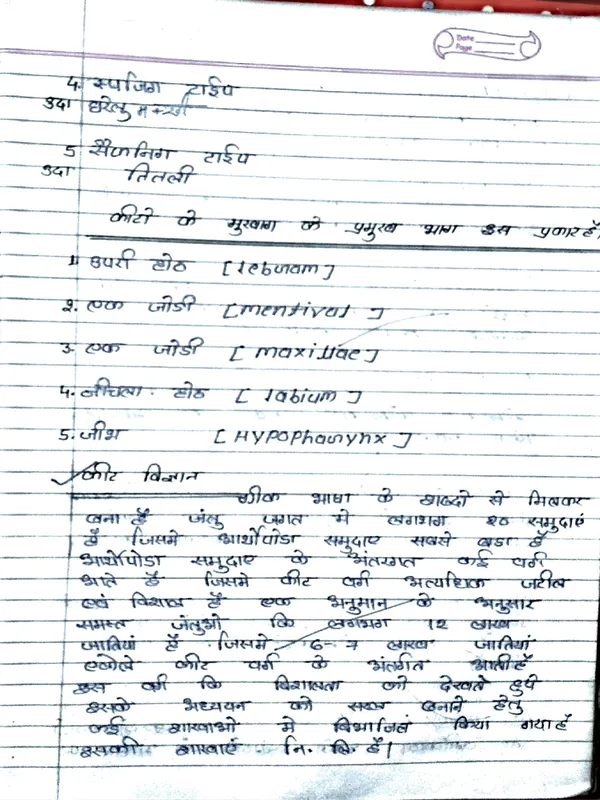 Date
Page
4. स्पजिग टाईप
उदा घरेलु मक्खी
5 सैफनिग टाईप
उदा तितली
कीटो के मुखाग के प्रमुख भाग इस प्रकार है।
1. उपरी होठ [leburam]
2. एक जोडी [mentival]
3. एक जोडी [maxillae]
4. नीचला होठ [labium]
5. जीभ [HYPophaynx]
कीट विज्ञान
ग्रीक भाषा के शब्दो से मिलकर
बना है जंतु जगत मे लगभग 20 समुदाएं
है जिसमे आर्थोपोडा समुदाए सबसे बडा है
आर्थोपोडा समुदाए के अंतरगत कई वर्ग
आते है जिसमे कीट वर्ग अत्यधिक जटील
एवं विशाल है एक अनुमान के अनुसार
समस्त जंतुओ कि लगभग 12 लाख
जातियां है जिसमे 6-7 लाख जातियां
अकेले कीट वर्ग के अंतर्गत आती है
इस वर्ग कि विशालता को देखते हुये
इसके अध्ययन को सरल बनाने हेतु
कई शाखाओ मे विभाजित किया गया है
इसकी शाखाएं नि. लि. है।